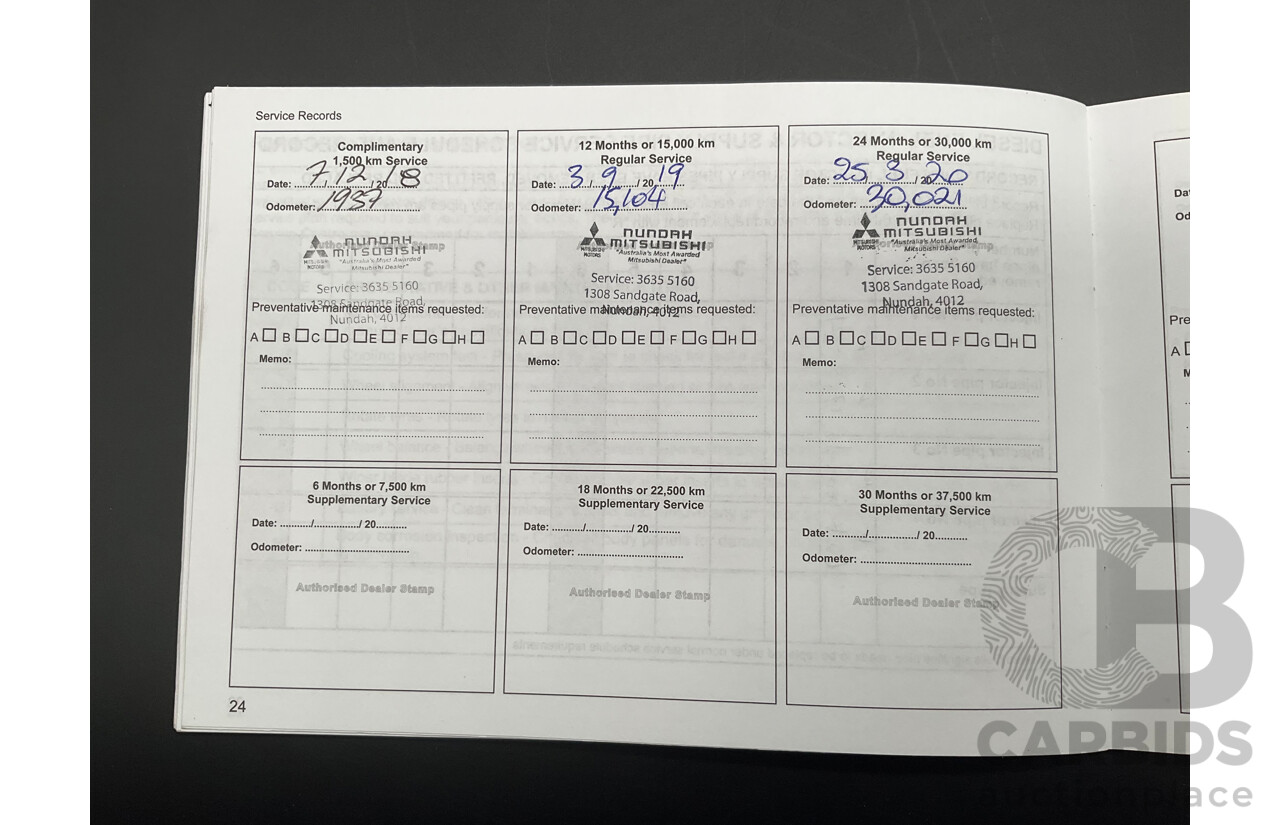 Service Records
Complimentary
1,500 km Service
Date: 7/12/2018
Odometer: 1937
NUNDAH
MITSUBISHI
MITSUBISHI MOTORS
"Australia's Most Awarded
Mitsubishi Dealer"
Service: 3635 5160
1308 Sandgate Road,
Nundah, 4012
Preventative maintenance items requested:
A B C D E F G H
Memo:
12 Months or 15,000 km
Regular Service
Date: 3/9/2019
Odometer: 15,104
NUNDAH
MITSUBISHI
MITSUBISHI MOTORS
"Australia's Most Awarded
Mitsubishi Dealer"
Service: 3635 5160
1308 Sandgate Road,
Nundah, 4012
Preventative maintenance items requested:
A B C D E F G H
Memo:
24 Months or 30,000 km
Regular Service
Date: 25/3/2020
Odometer: 30,021
NUNDAH
MITSUBISHI
MITSUBISHI MOTORS
"Australia's Most Awarded
Mitsubishi Dealer"
Service: 3635 5160
1308 Sandgate Road,
Nundah, 4012
Preventative maintenance items requested:
A B C D E F G H
Memo:
6 Months or 7,500 km
Supplementary Service
Date: ........../................/ 20..........
Odometer: ...................................
Authorised Dealer Stamp
18 Months or 22,500 km
Supplementary Service
Date: ........../................/ 20..........
Odometer: ...................................
Authorised Dealer Stamp
30 Months or 37,500 km
Supplementary Service
Date: ........../................/ 20..........
Odometer: ...................................
Authorised Dealer Stamp
24
Da
Od
Pre
A
M
CB
CARBIDS
auctionplace